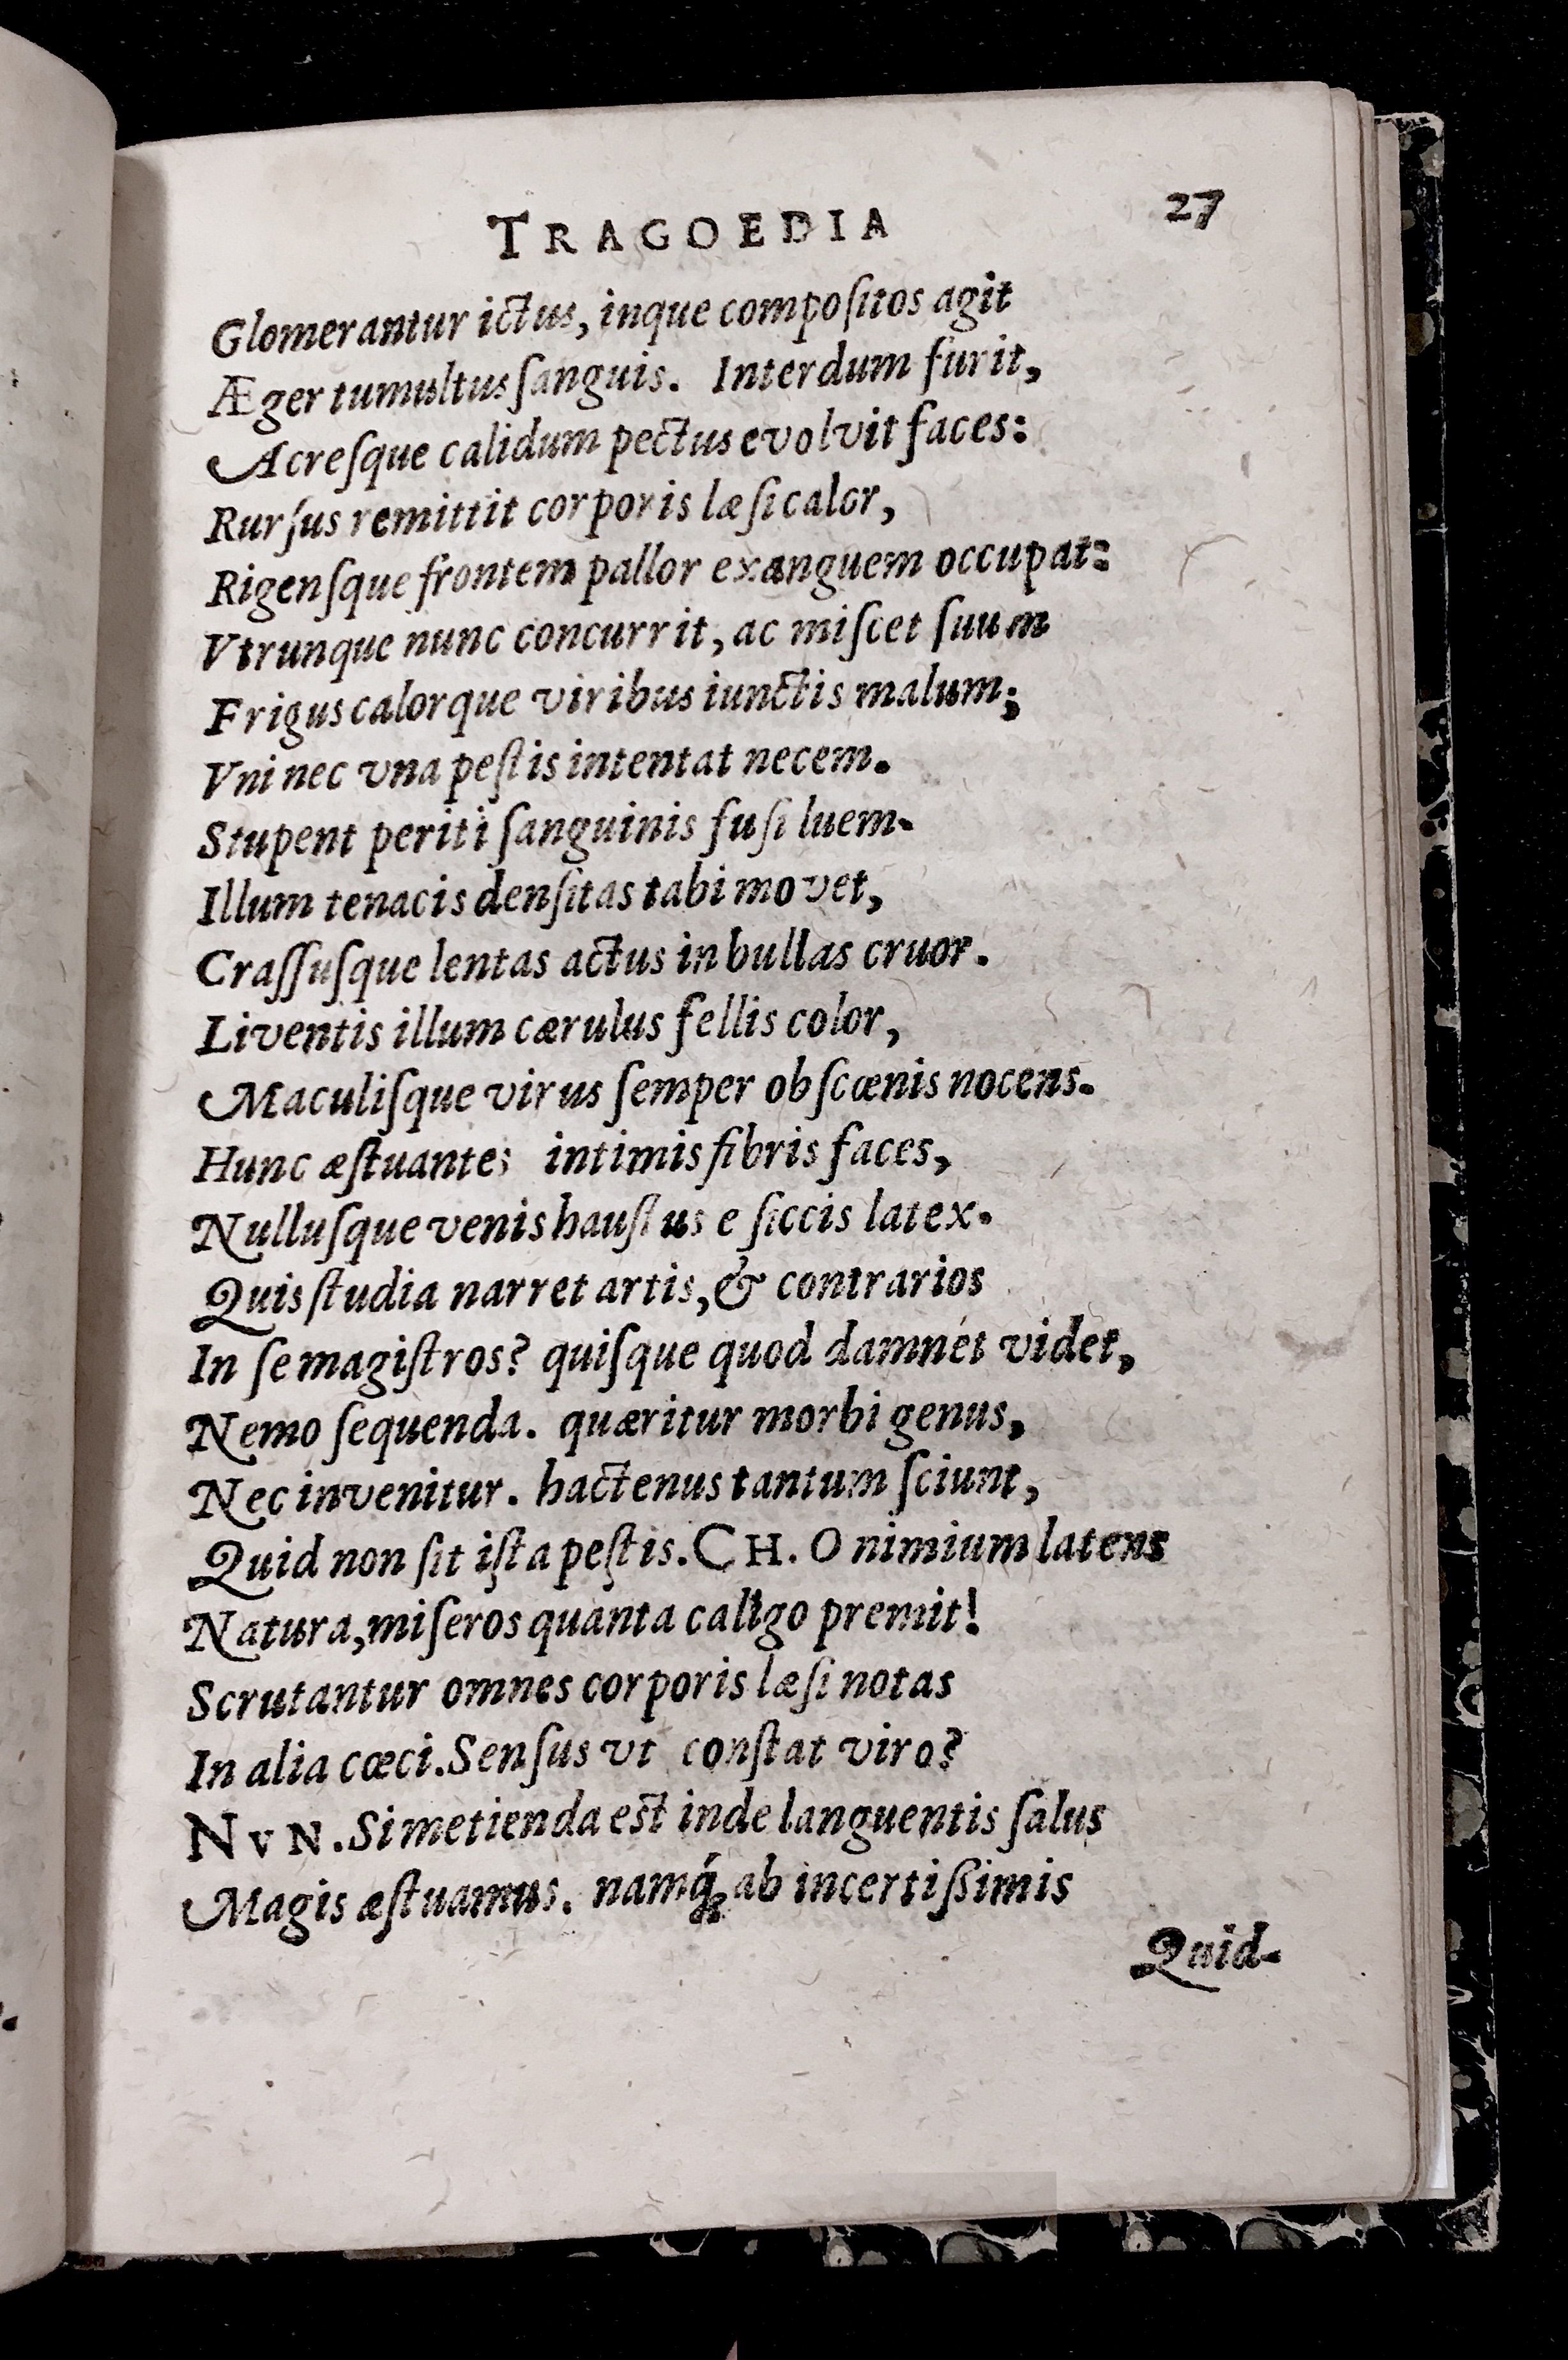 TRAGOEDIA 27
Glomerantur ictus, inque compoſitos agit
Æger tumultus ſanguis. Interdum furit,
Acreſque calidum pectus evolvit faces:
Rurſus remittit corporis læſi calor,
Rigenſque frontem pallor exanguem occupat:
Vtrunque nunc concurrit, ac miſcet ſuum
Frigus calorque viribus iunctis malum;
Vni nec vna peſtis intentat necem.
Stupent periti ſanguinis fuſi luem.
Illum tenacis denſitas tabi movet,
Craſſuſque lentas actus in bullas cruor.
Liventis illum cærulus fellis color,
Maculiſque virus ſemper obſcœnis nocens.
Hunc æſtuantes intimis fibris faces,
Nulluſque venis hauſtus e ſiccis latex.
Quis ſtudia narret artis, & contrarios
In ſe magiſtros? quiſque quod damnet videt,
Nemo ſequenda. quæritur morbi genus,
Nec invenitur. hactenus tantum ſciunt,
Quid non ſit iſta peſtis. CH. O nimium latens
Natura, miſeros quanta caligo premit!
Scrutantur omnes corporis læſi notas
In alia cœci. Senſus vt conſtat viro?
NVN. Si metienda eſt inde languentis ſalus
Magis æſtuamus. namq́; ab incertiſsimis
Quid-